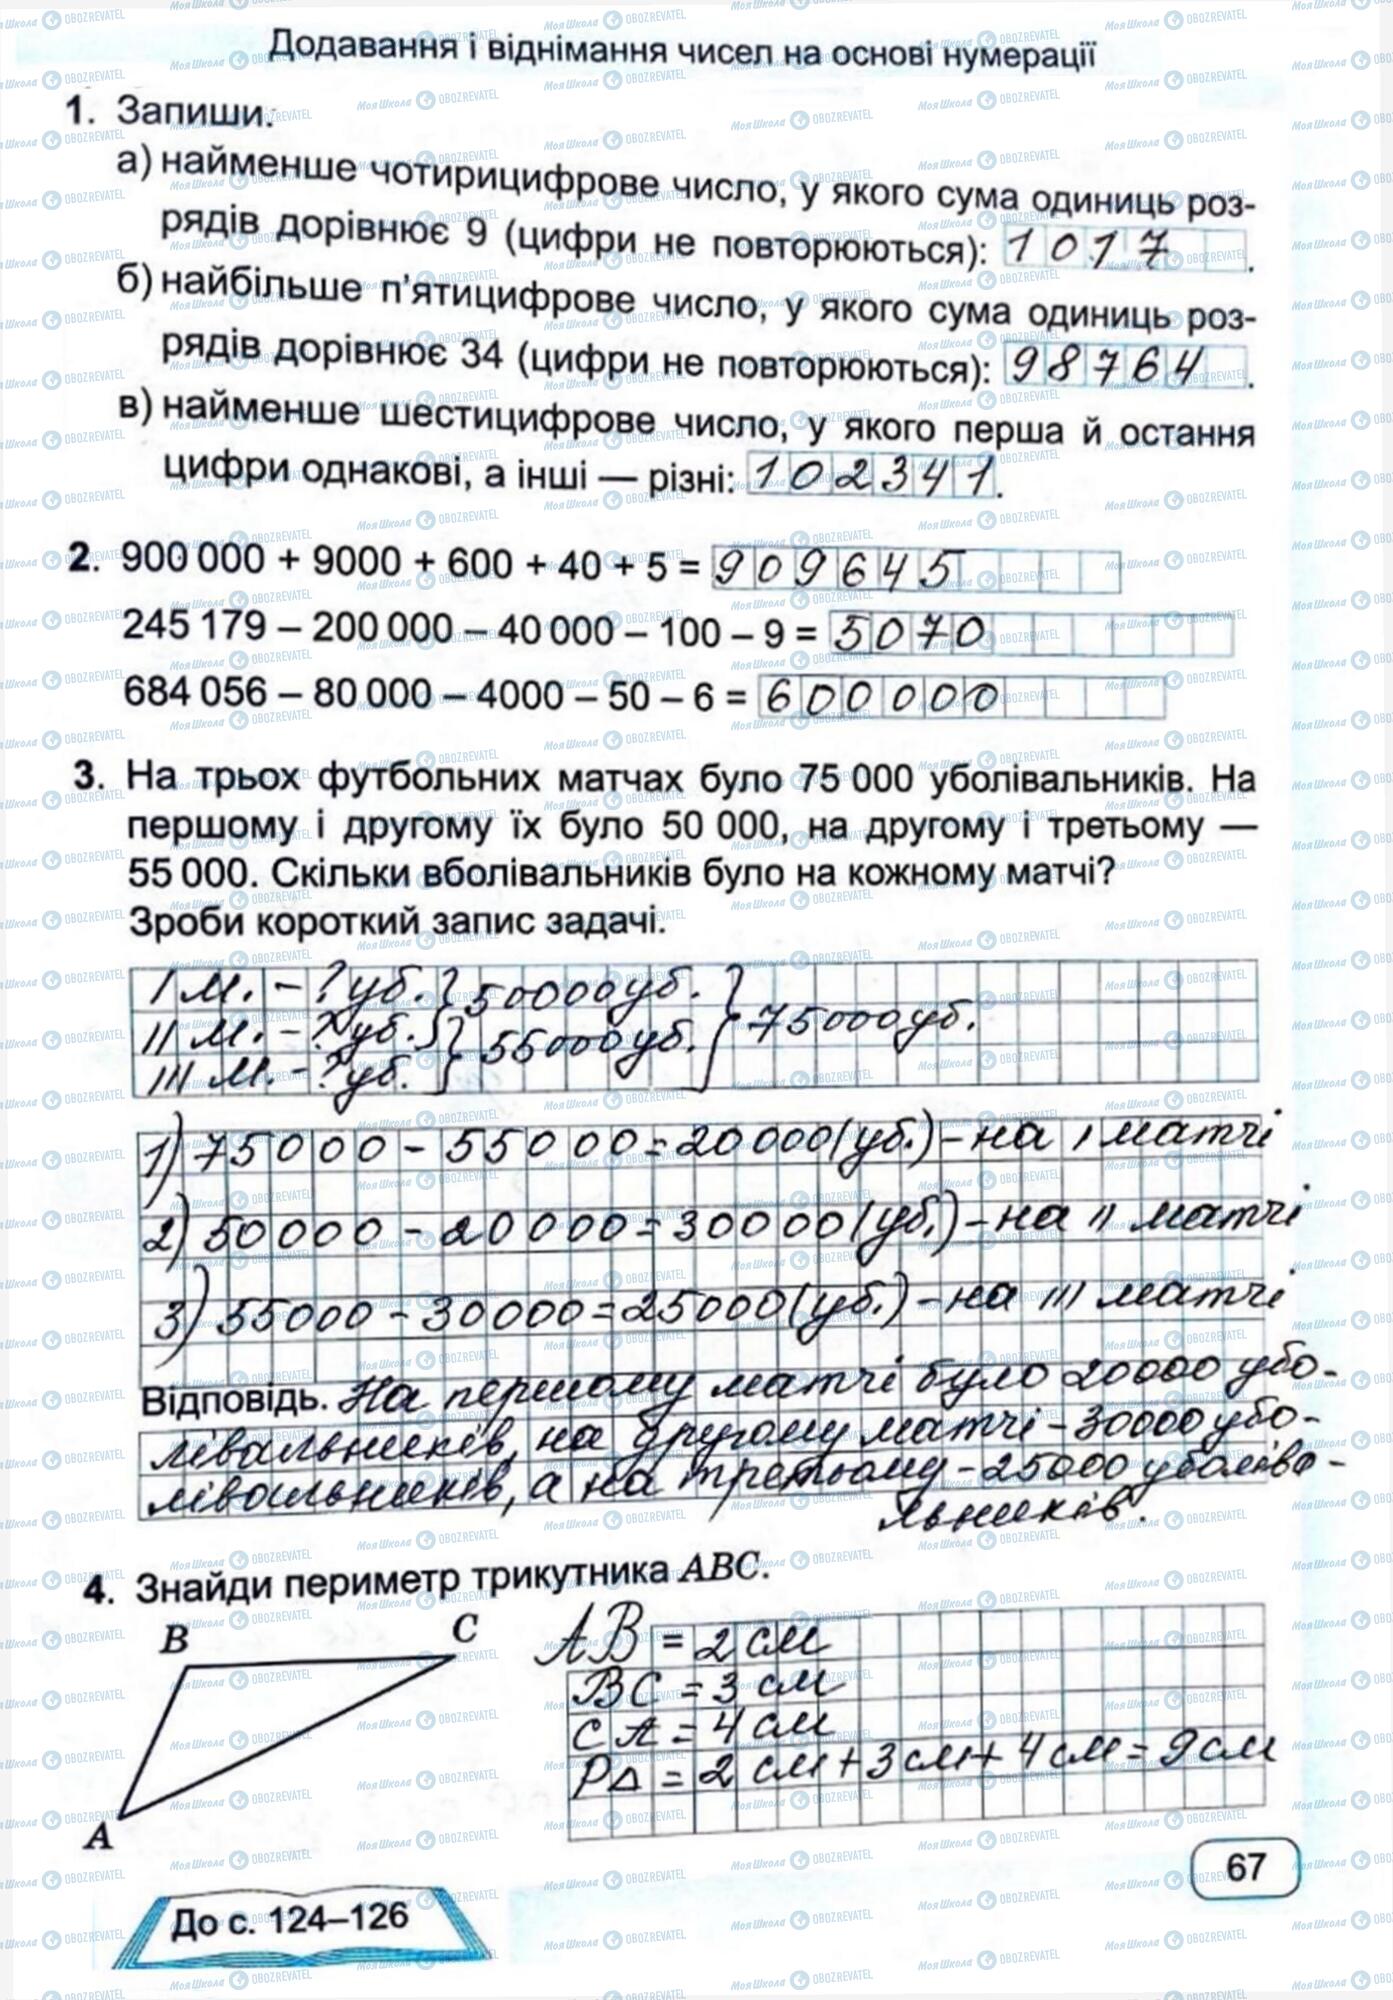 Додавання і віднімання чисел на основі нумерації
1. Запиши.
а) найменше чотирицифрове число, у якого сума одиниць роз-
рядів дорівнює 9 (цифри не повторюються): 1017.
б) найбільше п'ятицифрове число, у якого сума одиниць роз-
рядів дорівнює 34 (цифри не повторюються): 98764.
в) найменше шестицифрове число, у якого перша й остання
цифри однакові, а інші — різні: 102341.
2. 900 000 + 9000 + 600 + 40 + 5 = 909645
245 179 – 200 000 – 40 000 – 100 – 9 = 5070
684 056 – 80 000 – 4000 – 50 – 6 = 600000
3. На трьох футбольних матчах було 75 000 уболівальників. На
першому і другому їх було 50 000, на другому і третьому —
55 000. Скільки вболівальників було на кожному матчі?
Зроби короткий запис задачі.
I м. – ? уб. } 50000 уб. }
II м. – ? уб. } 55000 уб. } 75000 уб.
III м. – ? уб. }
1) 75000 – 55000 = 20000 (уб.) – на I матчі
2) 50000 – 20000 = 30000 (уб.) – на II матчі
3) 55000 – 30000 = 25000 (уб.) – на III матчі
Відповідь. На першому матчі було 20000 убо-
лівальників, на другому матчі – 30000 убо-
лівальників, а на третьому – 25000 уболіва-
льників.
4. Знайди периметр трикутника ABC.
B C
A
AB = 2 см
BC = 3 см
CA = 4 см
P△ = 2 см + 3 см + 4 см = 9 см
67
До с. 124–126
МояШкола OBOZREVATEL